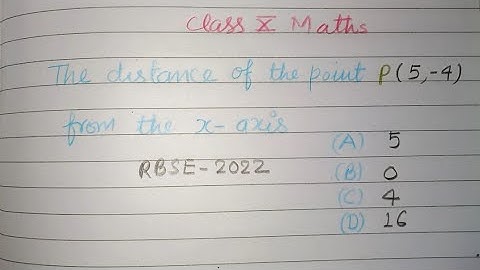 Class X Maths
The distance of the point P(5,-4)
from the x-axis
(A) 5
RBSE-2022 (B) 0
(C) 4
(D) 16